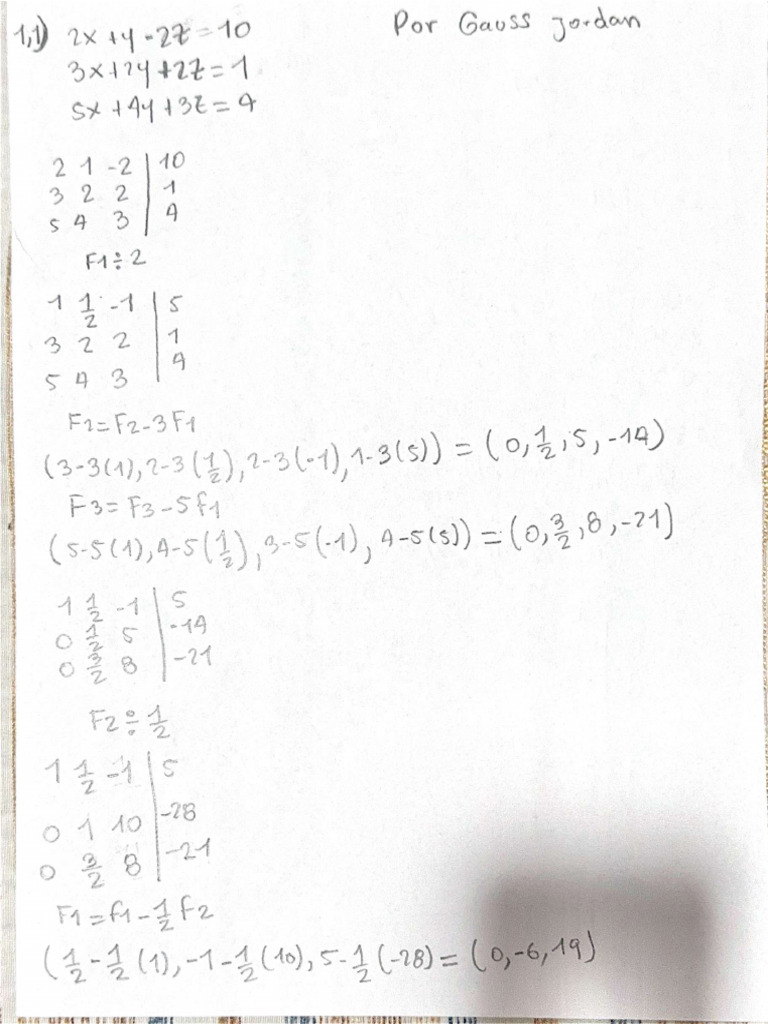 1,1) 2x+y-2z=10 Por Gauss jordan
3x+2y+2z=1
5x+4y+3z=4
2 1 -2 | 10
3 2 2 | 1
5 4 3 | 4
F1÷2
1 1/2 -1 | 5
3 2 2 | 1
5 4 3 | 4
F2=F2-3F1
(3-3(1),2-3(1/2),2-3(-1),1-3(5))=(0,1/2,5,-14)
F3=F3-5f1
(5-5(1),4-5(1/2),3-5(-1),4-5(5))=(0,3/2,8,-21)
1 1/2 -1 | 5
0 1/2 5 | -14
0 3/2 8 | -21
F2÷1/2
1 1/2 -1 | 5
0 1 10 | -28
0 3/2 8 | -21
F1=f1-1/2 F2
(1/2-1/2(1),-1-1/2(10),5-1/2(-28)=(0,-6,19)